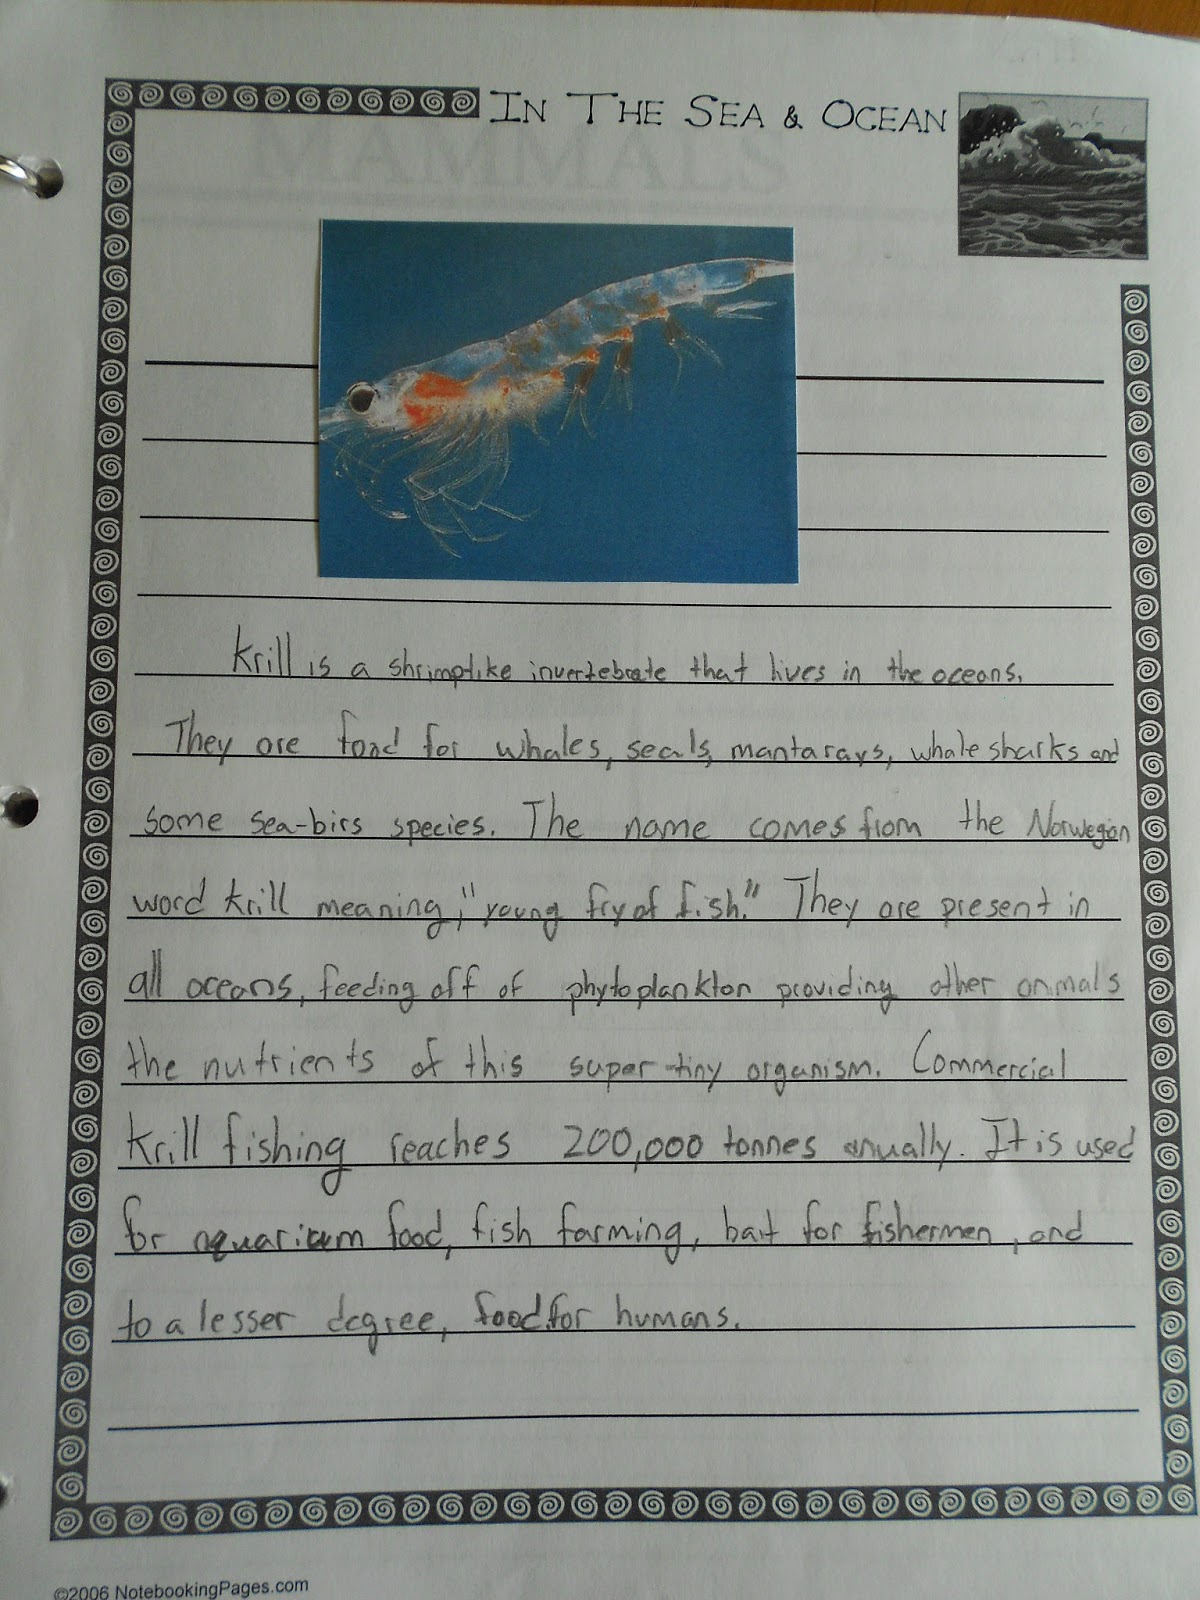 IN THE SEA & OCEAN
MAMMALS
Krill is a shrimplike invertebrate that lives in the oceans.
They are food for whales, seals, mantarays, whale sharks and
some sea-birs species. The name comes from the Norwegian
word krill meaning, "young fry of fish." They are present in
all oceans, feeding off of phytoplankton providing other animals
the nutrients of this super-tiny organism. Commercial
Krill fishing reaches 200,000 tonnes anually. It is used
for aquarium food, fish farming, bait for fishermen, and
to a lesser degree, food for humans.
©2006 NotebookingPages.com